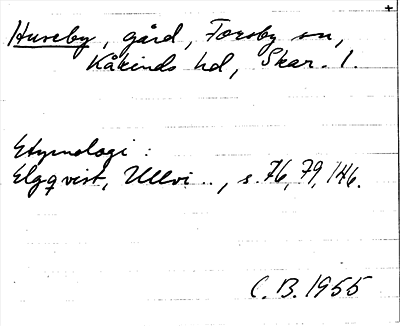 Huseby, gård, Forsby sn,
Kåkinds hd, Skar. l.
Etymologi :
Elgqvist, Ullvi.., s. 76, 79, 146.
C. B. 1955